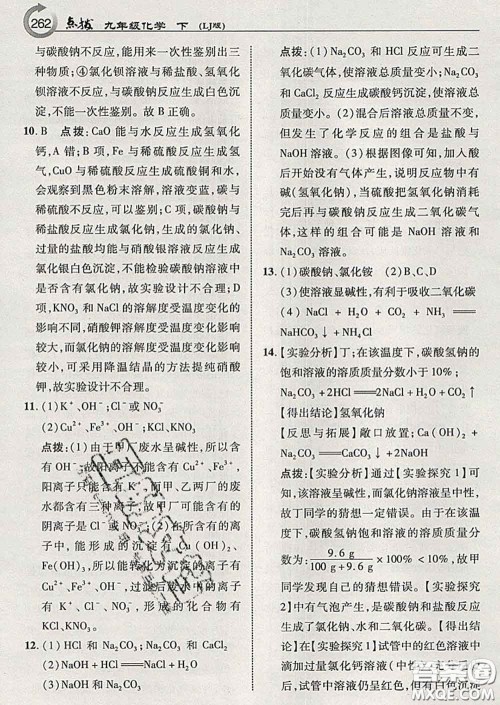 262 点拨 九年级化学 下 (LJ版)
与碳酸钠不反应,能用来一次性鉴别出三
种物质;④氯化钡溶液与稀盐酸、氢氧化
钡溶液不反应,与碳酸钠反应生成白色沉
淀,不能一次性鉴别。故 B 正确。
10. B 点拨:CaO 能与水反应生成氢氧化
钙,A 错;B 项,Fe 与稀硫酸反应生成氢
气,CuO 与稀硫酸反应生成硫酸铜和水,
会观察到黑色粉末溶解,溶液变蓝,碳与
稀硫酸不反应,可以鉴别;C 项,碳酸钠与
盐酸反应生成氯化钠,生成的氯化钠、
过量的盐酸均能与硝酸银溶液反应生成
氯化银白色沉淀,不能检验碳酸钠溶液中
是否含有氯化钠,故实验设计不合理;
D 项,KNO₃ 和 NaCl 的溶解度受温度变化的
影响不同,硝酸钾溶解度受温度变化影响
较大,而氯化钠的溶解度受温度变化影响
较小,可采用降温结晶的方法提纯硝酸
钾,故实验设计不合理。
11. (1) K⁺、OH⁻;Cl⁻或 NO₃⁻
(2) Cu²⁺、Fe³⁺、OH⁻;KCl、KNO₃
点拨:(1)由于甲厂废水呈碱性,所以含
有 OH⁻,故阳离子不能含有 Cu²⁺、Fe³⁺,
阳离子只能含有 K⁺,而甲、乙两厂的废
水都含有三种离子,因此甲厂含有的
阴离子是 Cl⁻或 NO₃⁻。(2)在所含的离子
中,能形成的沉淀有 Cu(OH)₂、
Fe(OH)₃,所以能转化为沉淀的离子有
Cu²⁺、Fe³⁺、OH⁻,最后废水中的离子
有 K⁺、Cl⁻、NO₃⁻,形成的化合物有
KCl、KNO₃。
12. (1) HCl 和 Na₂CO₃;Na₂CO₃ 和 CaCl₂
(2) NaOH + HCl══NaCl + H₂O
(3) NaOH 和 Na₂CO₃
点拨:(1) Na₂CO₃ 和 HCl 反应生成二氧
化碳气体,使溶液总质量减小;Na₂CO₃
和 CaCl₂ 生成碳酸钙沉淀,使溶液总质
量减小。(2)混合后溶液总质量不变,但
发生了化学反应的组合是盐酸与
NaOH 溶液。(3)根据图像可知,加入酸
开始后没有气体产生,说明反应物中有
碱(氢氧化钠),当硫酸把氢氧化钠消耗
完后与碳酸钠反应生成二氧化碳气
体,这样的组合可能是 NaOH 溶液和
Na₂CO₃ 溶液。
13. (1)碳酸钠、氯化铵 (2)B、C、D
(3)使溶液显碱性,有利于吸收二氧化碳
(4) NaCl + H₂O + CO₂ + NH₃══
NaHCO₃↓ + NH₄Cl
14. 【实验分析】丁;在该温度下,碳酸氢钠的
饱和溶液的溶质质量分数小于 10%;
Na₂CO₃+2HCl══2NaCl+H₂O+CO₂↑
【得出结论】氢氧化钠
【反思与拓展】敞口放置;Ca(OH)₂ +
Na₂CO₃══CaCO₃↓+2NaOH
点拨:【实验分析】通过【实验探究 1】可
知,该溶液显碱性,而氯化钠溶液呈中性,
故丁同学的猜想一定错误。由于在该温
度下,碳酸氢钠饱和溶液的溶质质量分
数为:9.6 g/(100 g+9.6 g)×100%<10%,故甲
同学发现自己的猜想错误。【实验探究
2】中有气泡产生,是碳酸钠和盐酸反应
生成了氯化钠、水和二氧化碳。【得出结
论】在【实验探究 1】试管中的红色溶液中
滴加过量氯化钙溶液(中性),若有白色沉
淀生成且溶液仍呈红色,但有白色沉淀
答案圈
MXQE.COM